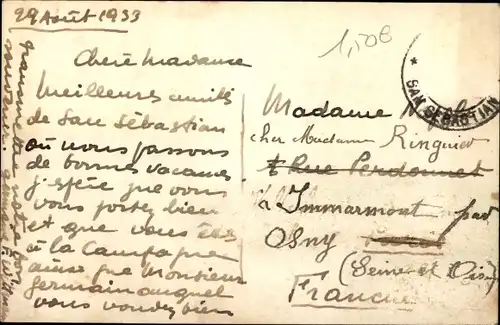 29 Août 1933
1,50€
SAN SEBASTIAN
Chère Madame
Meilleures amitiés
de San Sébastian
où nous passons
de bonnes vacances
j'espère que vous
vous portez bien
et que vous êtes
à la Campagne
ainsi que Monsieur
Germain auquel
vous voudrez bien
transmettre notre bon
souvenir.
Madame
cher Madame Ringuier
Rue Perdonnet
Immarmont par
Osny
(Seine et Oise)
France